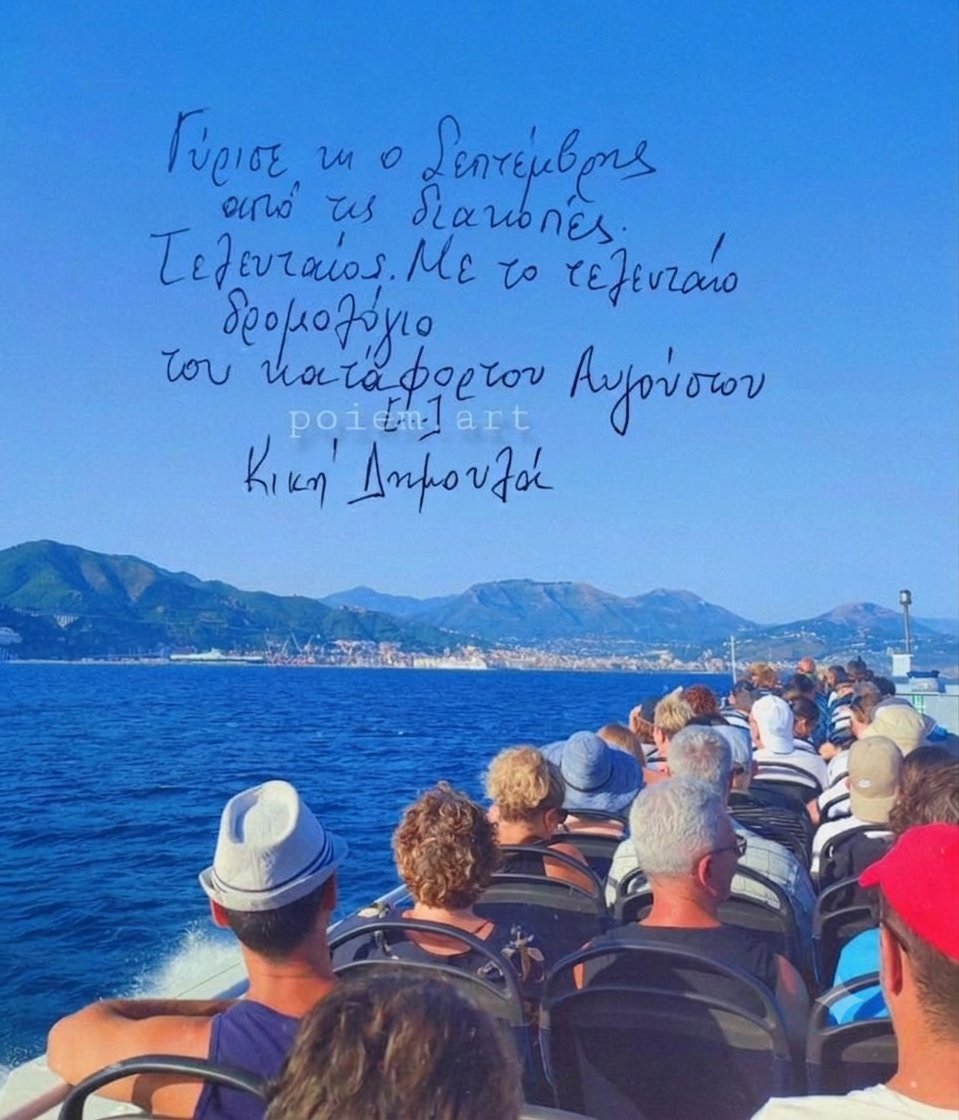 Γύρισε κι ο Σεπτέμβρης
από τις διακοπές.
Τελευταίος. Με το τελευταίο
δρομολόγιο
του κατάφορτου Αυγούστου
[..]
poiem art
Κική Δημουλά